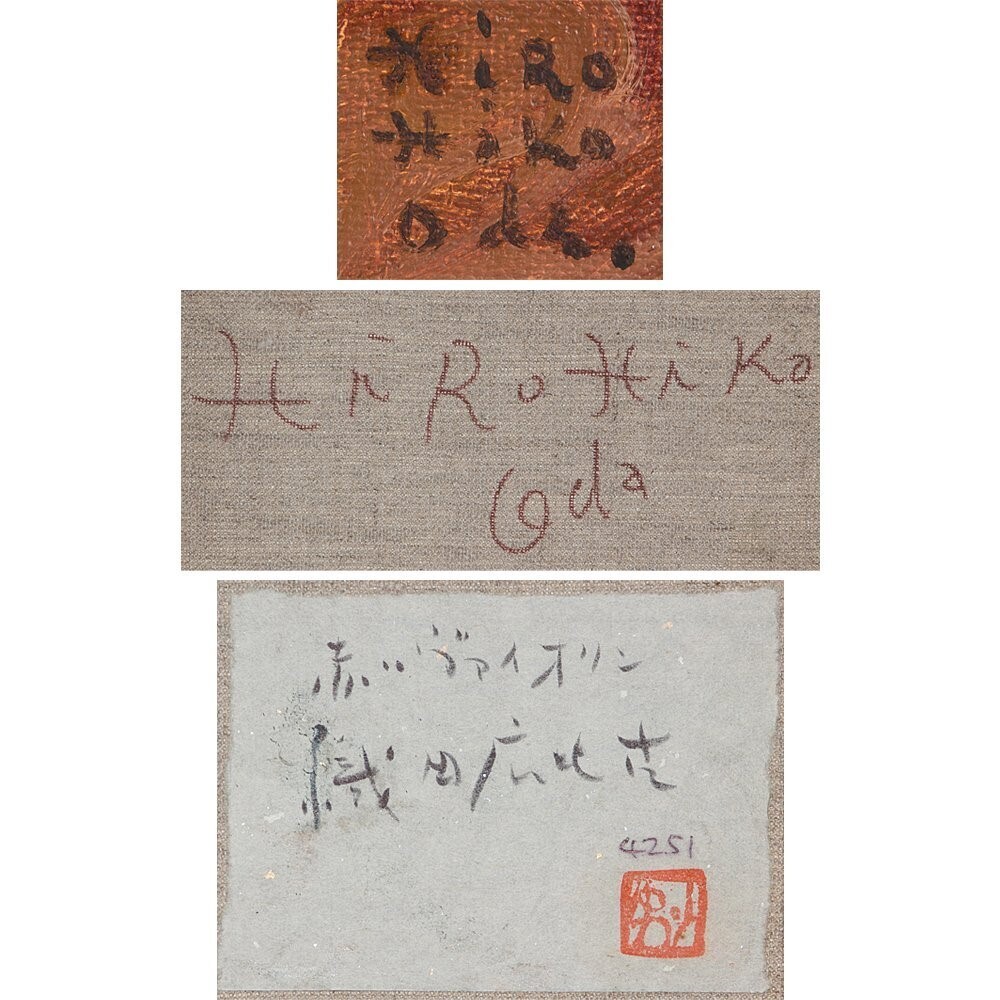 HiRo
Hiko
Oda.
HiRoHiKo
Oda
赤いヴァイオリン
織田広比古
4251